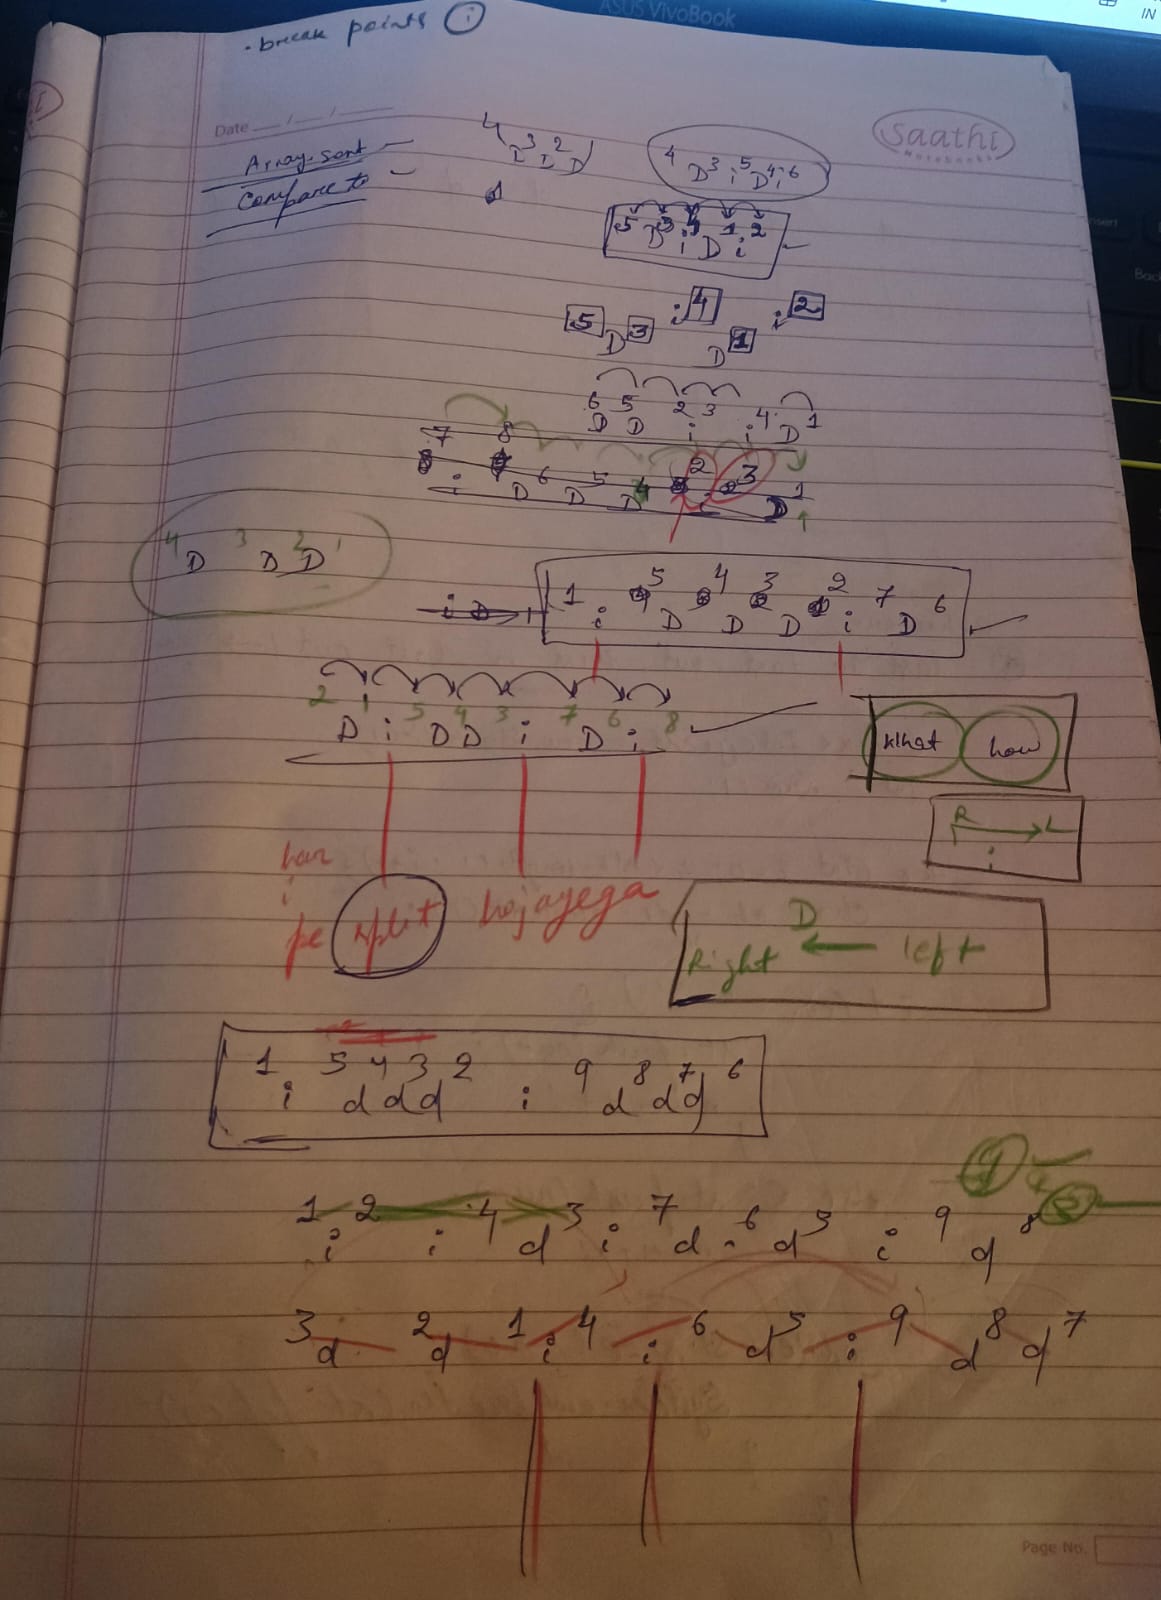 ASUS VivoBook
IN
. break points i
Date
Saathi
Notebooks
Array.sort -
Compare to -
4 D 3 D 2 D
1
4 D 3 i 5 D 4 i 6
5 D 3 i 4 D 1 i 2
5 D 3 i 4 D 1 i 2
6 D 5 D 2 i 3 i 4 D 1
7 8
i D 6 D 5 D 4 2 3 D 1
4 D 3 D 2 D 1
1 i 5 D 4 D 3 D 2 i 7 D 6
2 D 1 i 5 D 4 D 3 i 7 D 6 i 8
what how
R L
i
har
i
pe split hojayega
D
Right left
1 i 5 d 4 d 3 d 2 i 9 d 8 d 7 d 6
1 i 2 i 4 d 3 i 7 d 6 d 5 i 9 d 8
3 d 2 d 1 i 4 i 6 d 5 i 9 d 8 d 7
Page No.